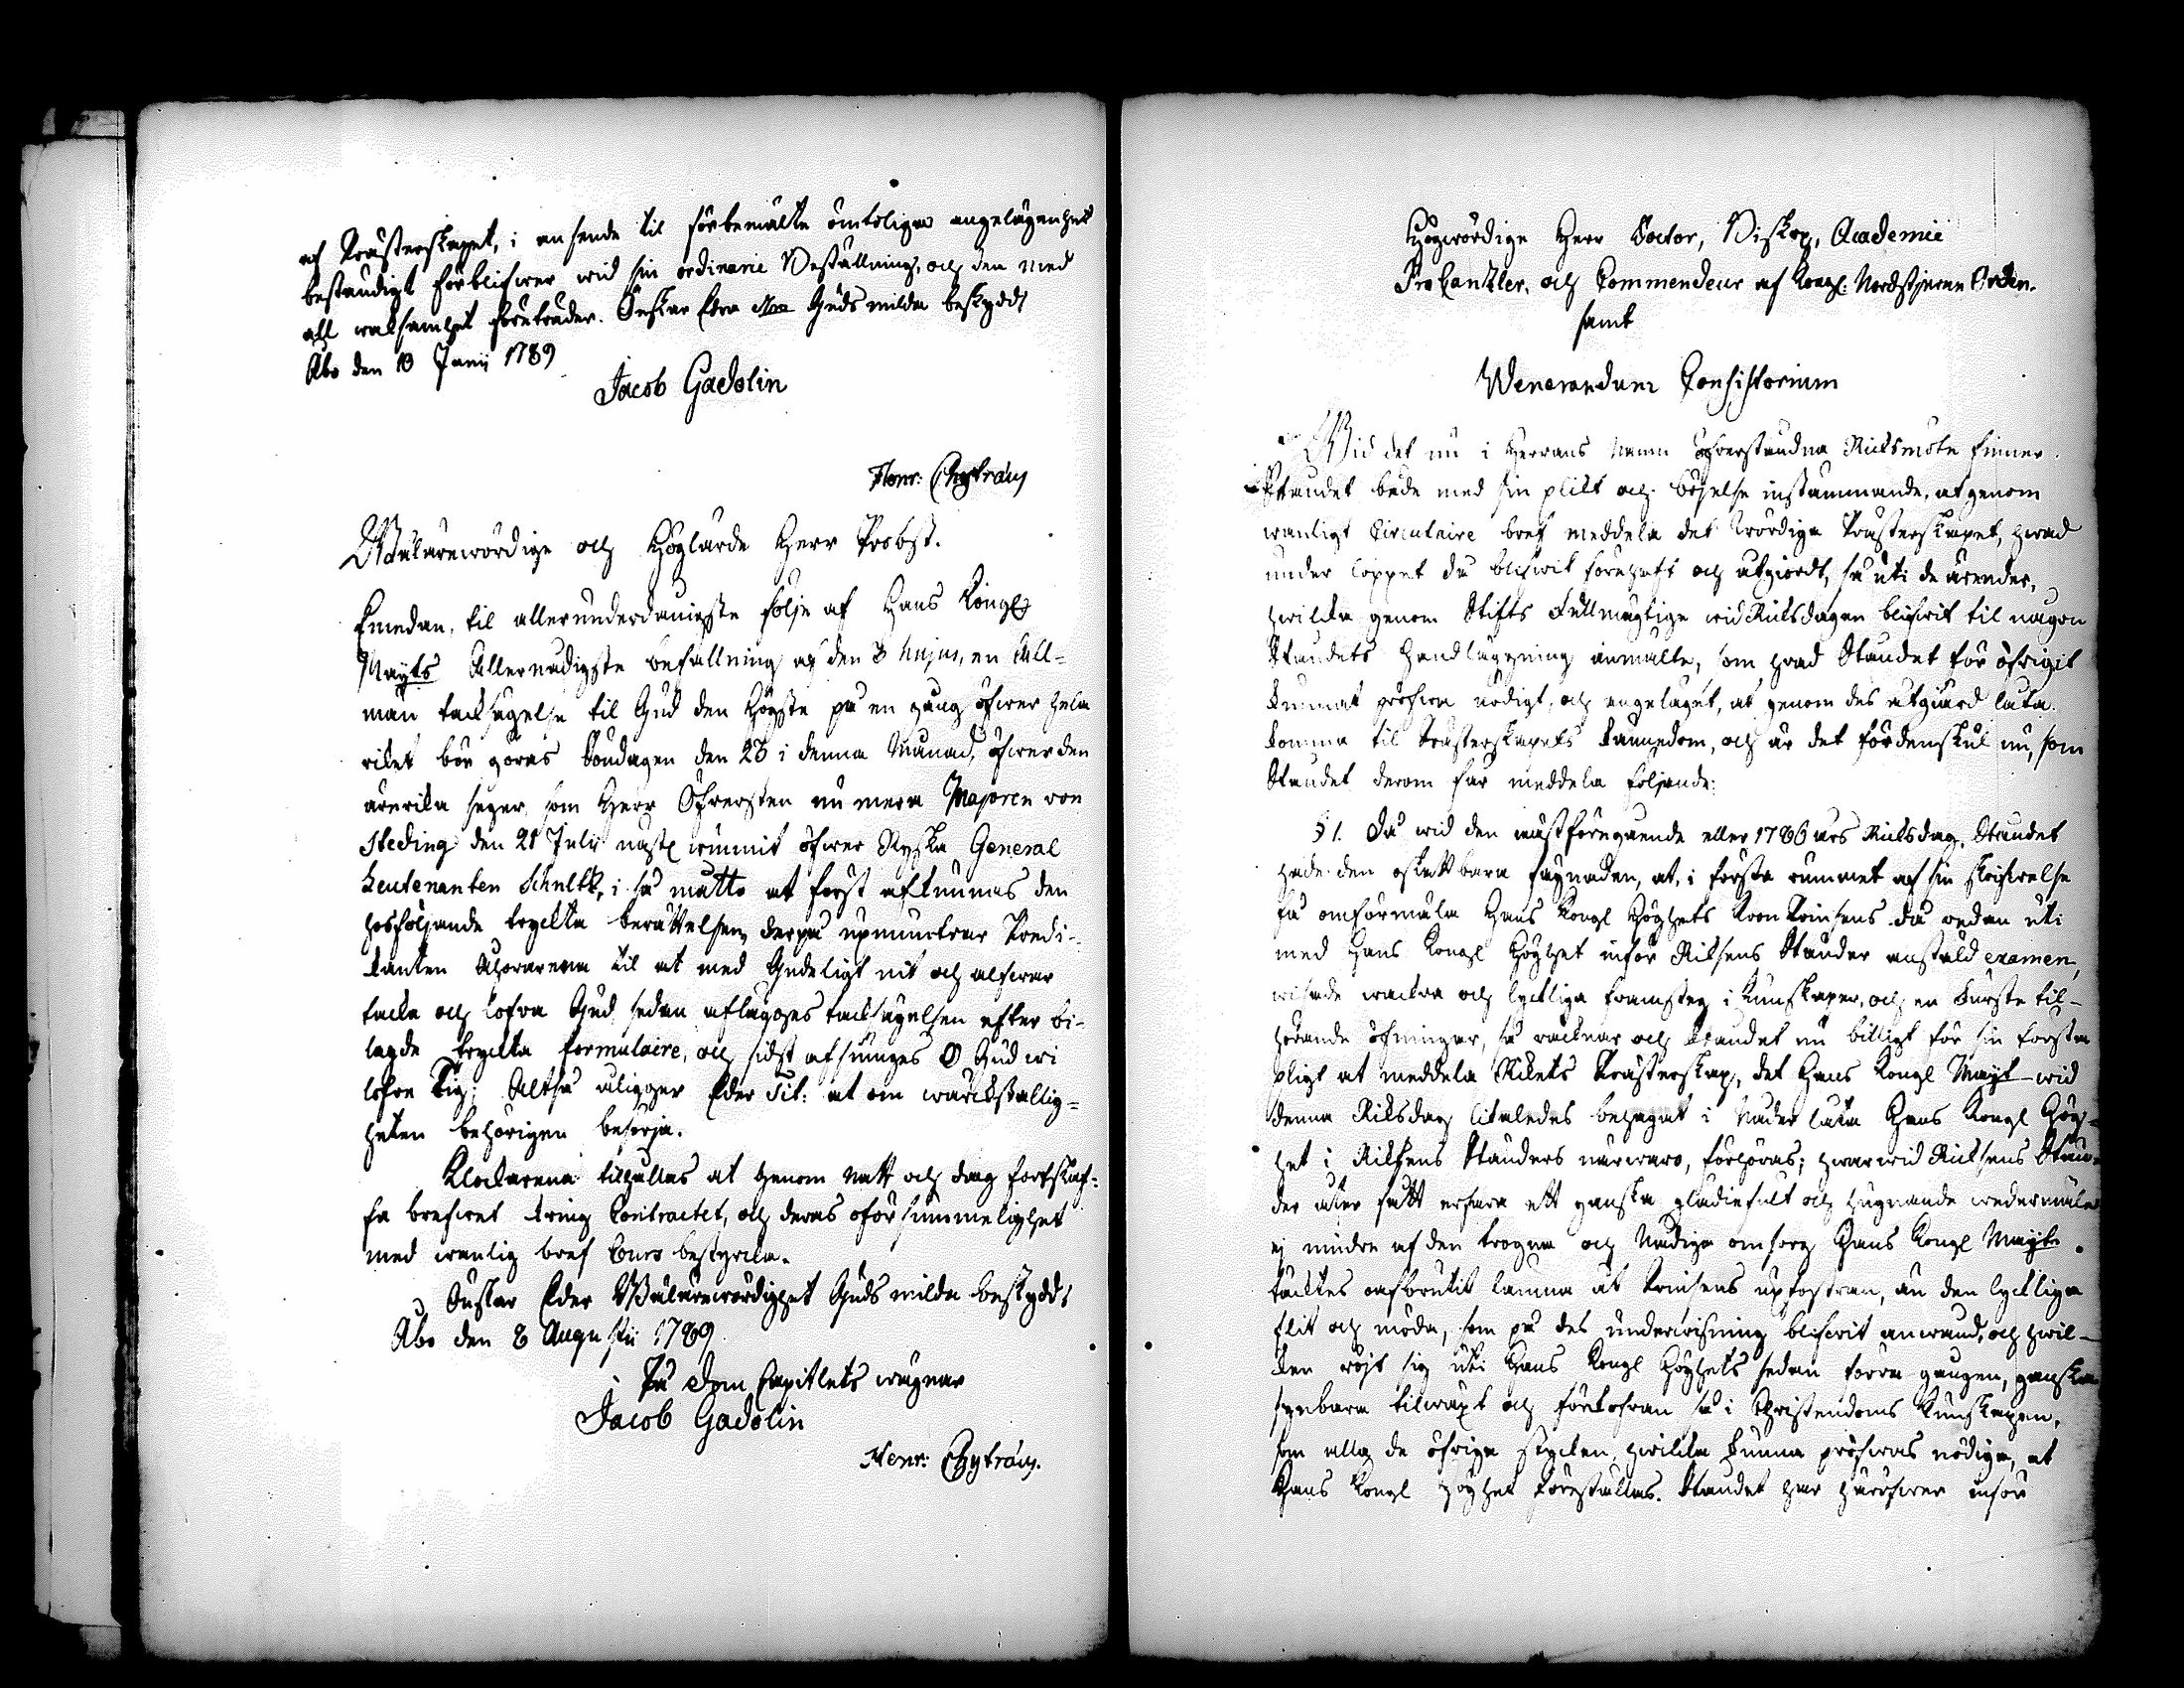 af Prästerskapet, i anseende til förbemälte ömtoliga angelägenhet
beständigt förblifwer wid sin ordinarie Beställning, och den med
all waksamhet förestrader. Önskar Edra Guds milda beskydd
Åbo den 13 Junii 1789
Jacob Gadolin
Henr: Chytræus
Wälärewördige och Höglärde Herr Probst.
Emedan, til allerunderdånigste följe af Hans Kongl
Mayts Allernådigste befallning af den 3 hujus, en All-
män tacksägelse til Gud den Högste på en gång öfwer hela
riket bör göras Söndagen den 23 i denna Månad, öfwer den
ärerika seger, som Herr Öfwersten nu mera Majoren von
Steding den 21 Julii näst wunnit öfwer Ryska General
Leutenanten Schultz, i så måtto at först afkunnas den
hosföljande tryckta berättelsen, derpå upmuntrar Predi-
kanten Åhörarena til at med Gudeligt nit och alfwar
tacka och lofwa Gud, sedan aflägges tacksägelsen efter bi-
lagde tryckta formulaire, och sidst afsunges O Gud wi
lofwe Tig; Altså åligger Eder Tit: at om wärckställig-
heten behörigen besörja.
Klockarena tilhållas at genom natt och dag fortskaf-
fa brefwet kring Contractet, och deras oförsummelighet
med wanlig bref Cours bestyrcka.
Önskar Eder Wälärewördighet Guds milda beskydd
Åbo den 8 Augustii 1789
På Dom Capitlets wägnar
Jacob Gadolin
Henr: Chytræus.
Högwördige Herr Doctor, Biskop, Academiæ
ProCantzler, och Commendeur af Kongl: Nordstjerne Orden.
samt
Wenerandum Consistorium
Wid det nu i Herrans Namn öfwerståndna Riksmöte finner
Ståndet både med sin plikt och böjelse instämmande, at genom
wanligt Circulaire bref meddela det Wördiga Prästerskapet, hwad
under loppet då blifwit förehaft och utgiordt, så uti de ärender,
hwilka genom Stifts Fullmägtige wid Riksdagen blifwit til någon
Ståndets Handläggning anmälte, som hwad Ståndet för öfrigit
kunnat pröfwa nödigt, och angelägt, at genom des utgiärd låta
komma til Prästerskapets kännedom, och är det fördenskul nu, som
Ståndet derom får meddela följande:
§ 1. Då wid den nästföregående eller 1786 års Riksdag, Ståndet
hade den oskattbara fägnaden, at, i första rummet af sin skrifwelse
få omförmäla Hans Kongl Höghets Kron Prinsens då redan uti
med Hans Kongl Höghet inför Riksens Ständer anstäld examen,
wisade wackra och lyckliga framsteg i Kunskaper, och en Furste til-
hörande öfningar, så räcknar och Ståndet nu billigt för sin första
pligt at meddela Rikets Prästerskap, det Hans Kongl Mayt wid
denna Riksdag likaledes behagat i Nåder låta Hans Kongl Hög-
het i Riksens Ständers närwaro, förhöras; hwarwid Riksens Stän-
der åter fått erfara ett ganska glädiefult och hugnande wedermäle
ej mindre af den trogna och Nådiga omsorg Hans Kongl Mayt
täcktes oafbrutit lämna åt Prinsens upfostran, än den lyckliga
flit och möda, som på des underwisning blifwit anwänd, och hwil-
ken röjt sig uti Hans Kongl Höghets sedan förra gången, ganska
synbara tilwäxt och förkofran så i Christendoms Kunskapen,
som alla de öfriga stycken, hwilka kunna pröfwas nödiga, at
Hans Kongl Höghet föreställas. Ståndet har häröfwer inför